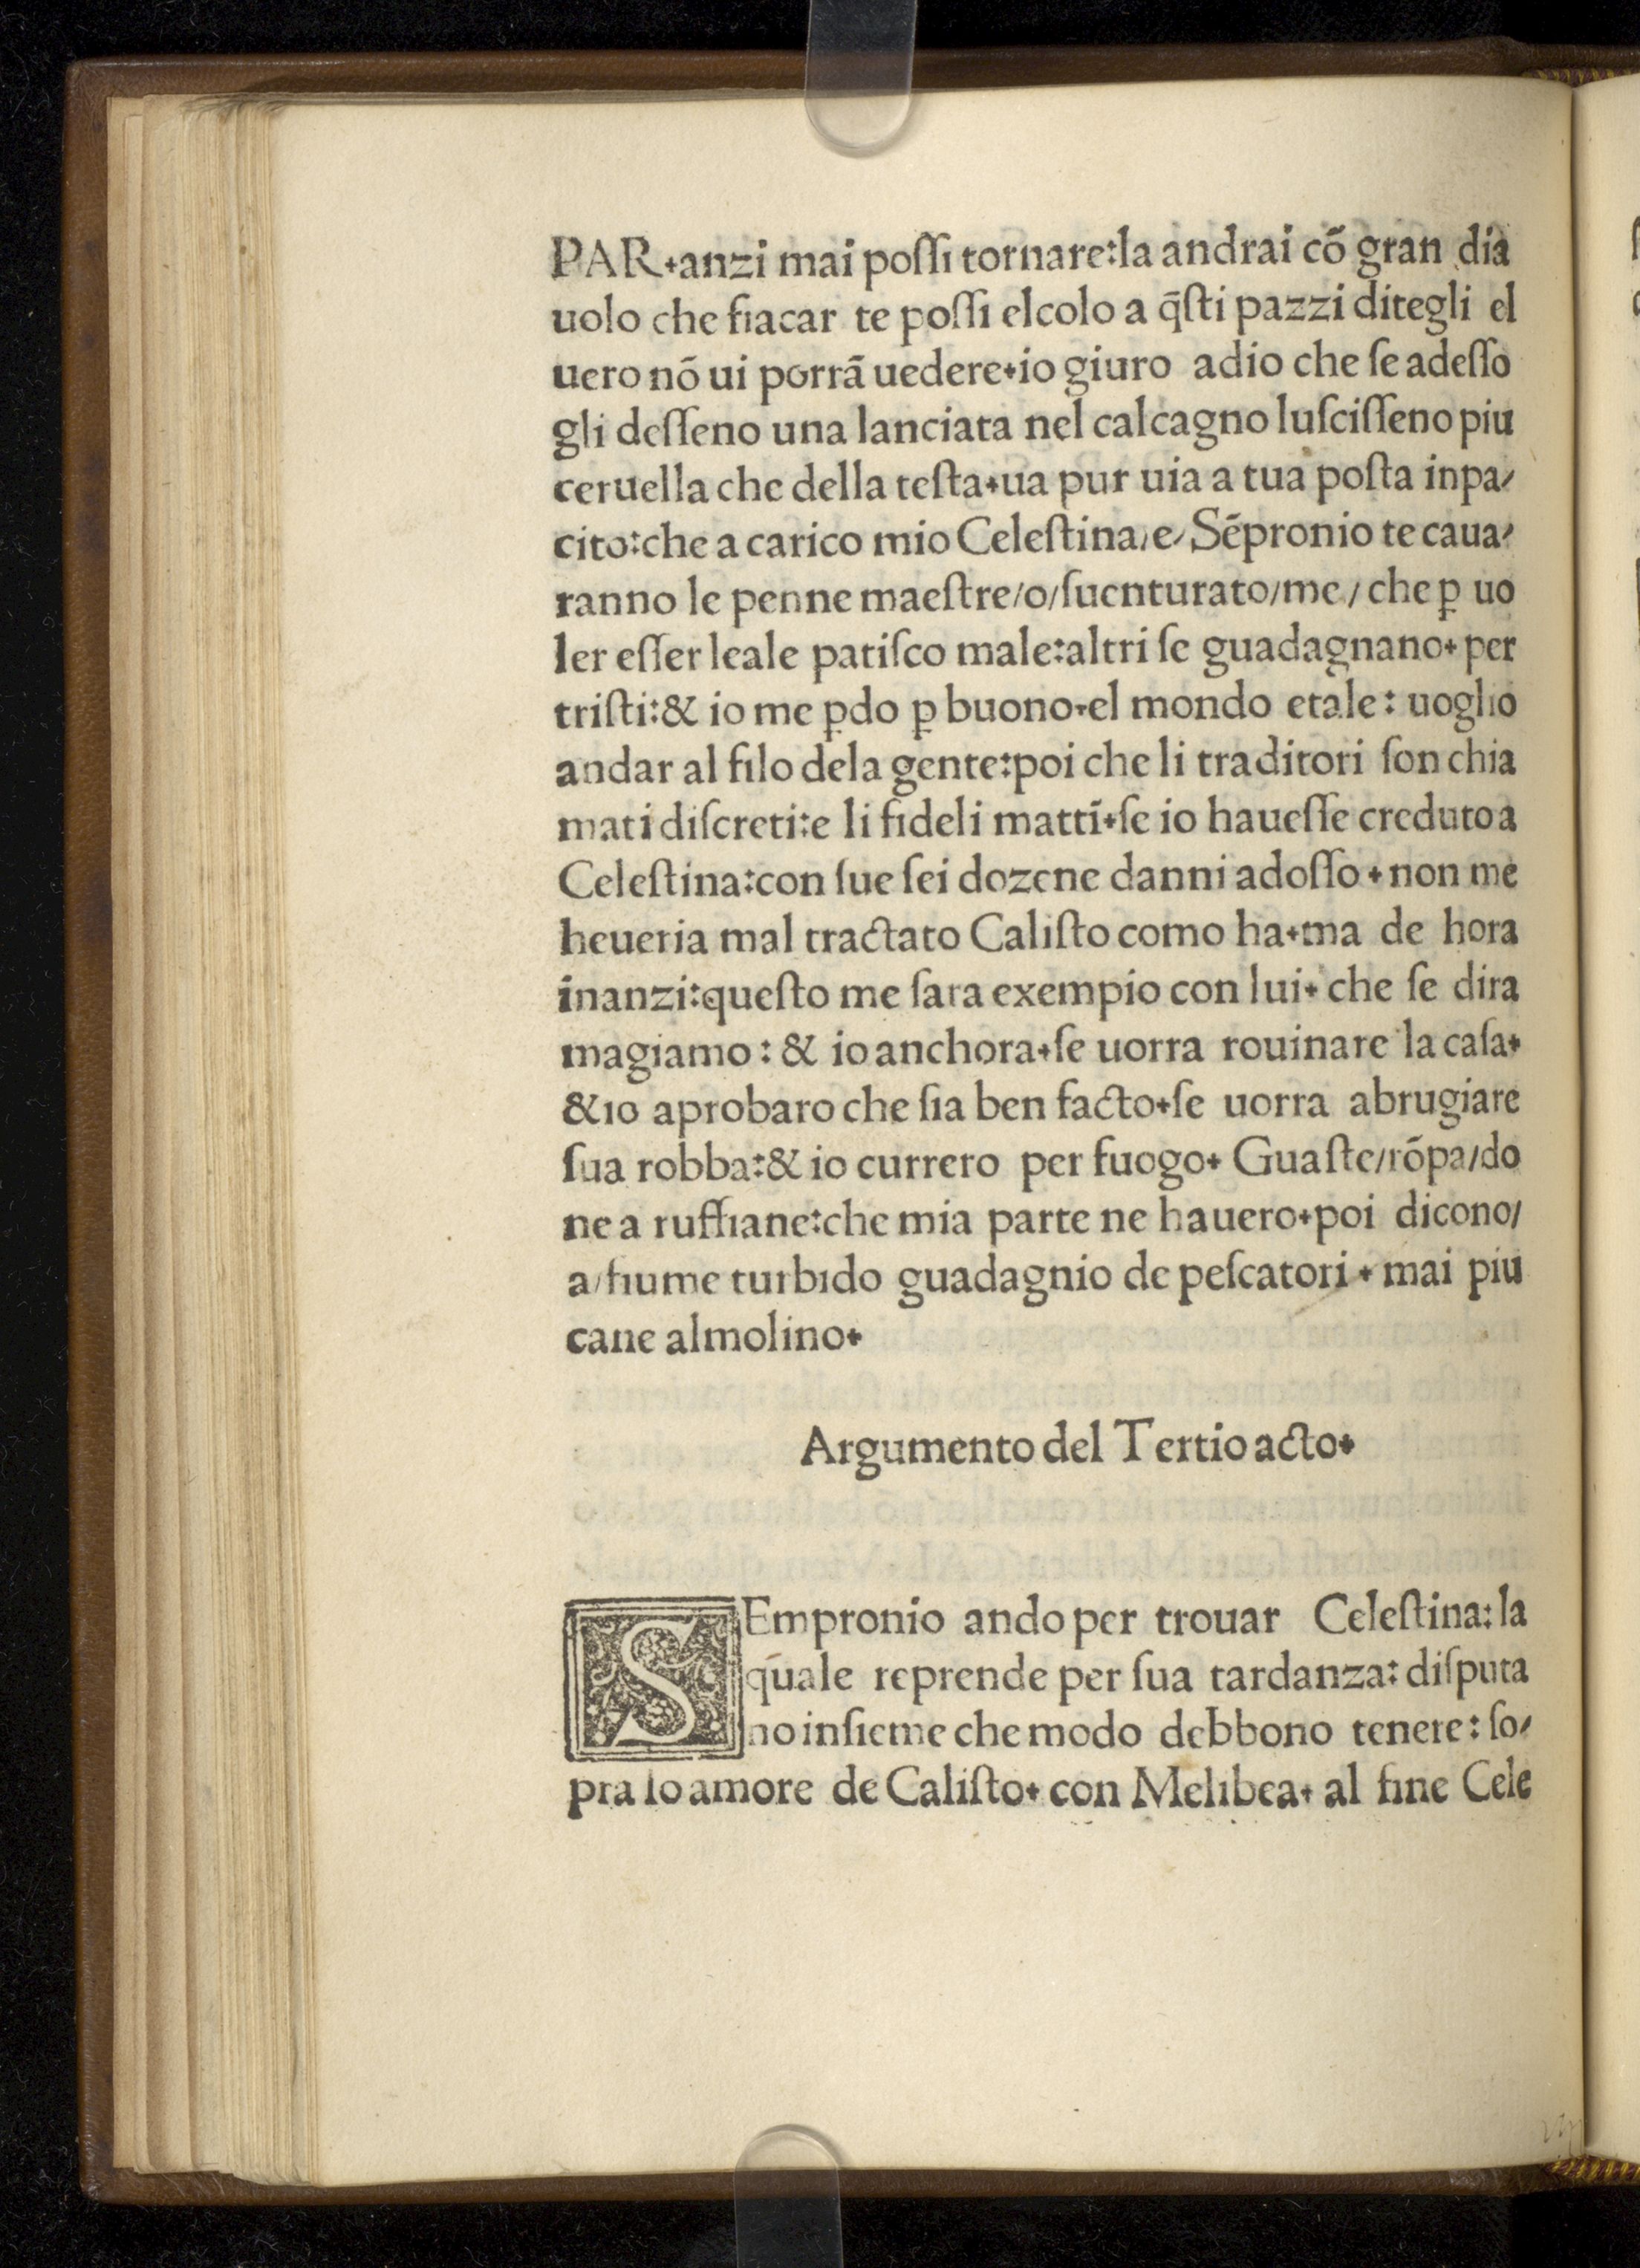 PAR.anzi mai poſſi tornare:la andrai cõ gran dia
uolo che fiacar te poſſi elcolo a q̃ſti pazzi ditegli el
uero nõ ui porrã uedere.io giuro adio che ſe adeſſo
gli deſſeno una lanciata nel calcagno luſciſſeno piu
ceruella che della teſta.ua pur uia a tua poſta inpa/
cito:che a carico mio Celeſtina/e/Sẽpronio te caua/
ranno le penne maeſtre/o/ſuenturato/me/che ꝑ uo
ler eſſer leale patiſco male:altri ſe guadagnano.per
triſti:& io me ꝑdo ꝑ buono.el mondo etale: uoglio
andar al filo dela gente:poi che li traditori ſon chia
mati diſcreti:e li fideli matti.ſe io haueſſe creduto a
Celeſtina:con ſue ſei dozene danni adoſſo.non me
heueria mal tractato Caliſto como ha.ma de hora
inanzi:queſto me ſara exempio con lui.che ſe dira
magiamo: & io anchora.ſe uorra rouinare la caſa.
&io aprobaro che ſia ben facto.ſe uorra abrugiare
ſua robba:& io currero per fuogo. Guaſte/rõpa/do
ne a ruffiane:che mia parte ne hauero.poi dicono/
a/fiume turbido guadagnio de peſcatori.mai piu
cane almolino.
Argumento del Tertio acto.
SEmpronio ando per trouar Celeſtina:la
quale reprende per ſua tardanza: diſputa
no inſieme che modo debbono tenere: ſo/
pra lo amore de Caliſto.con Melibea.al fine Cele